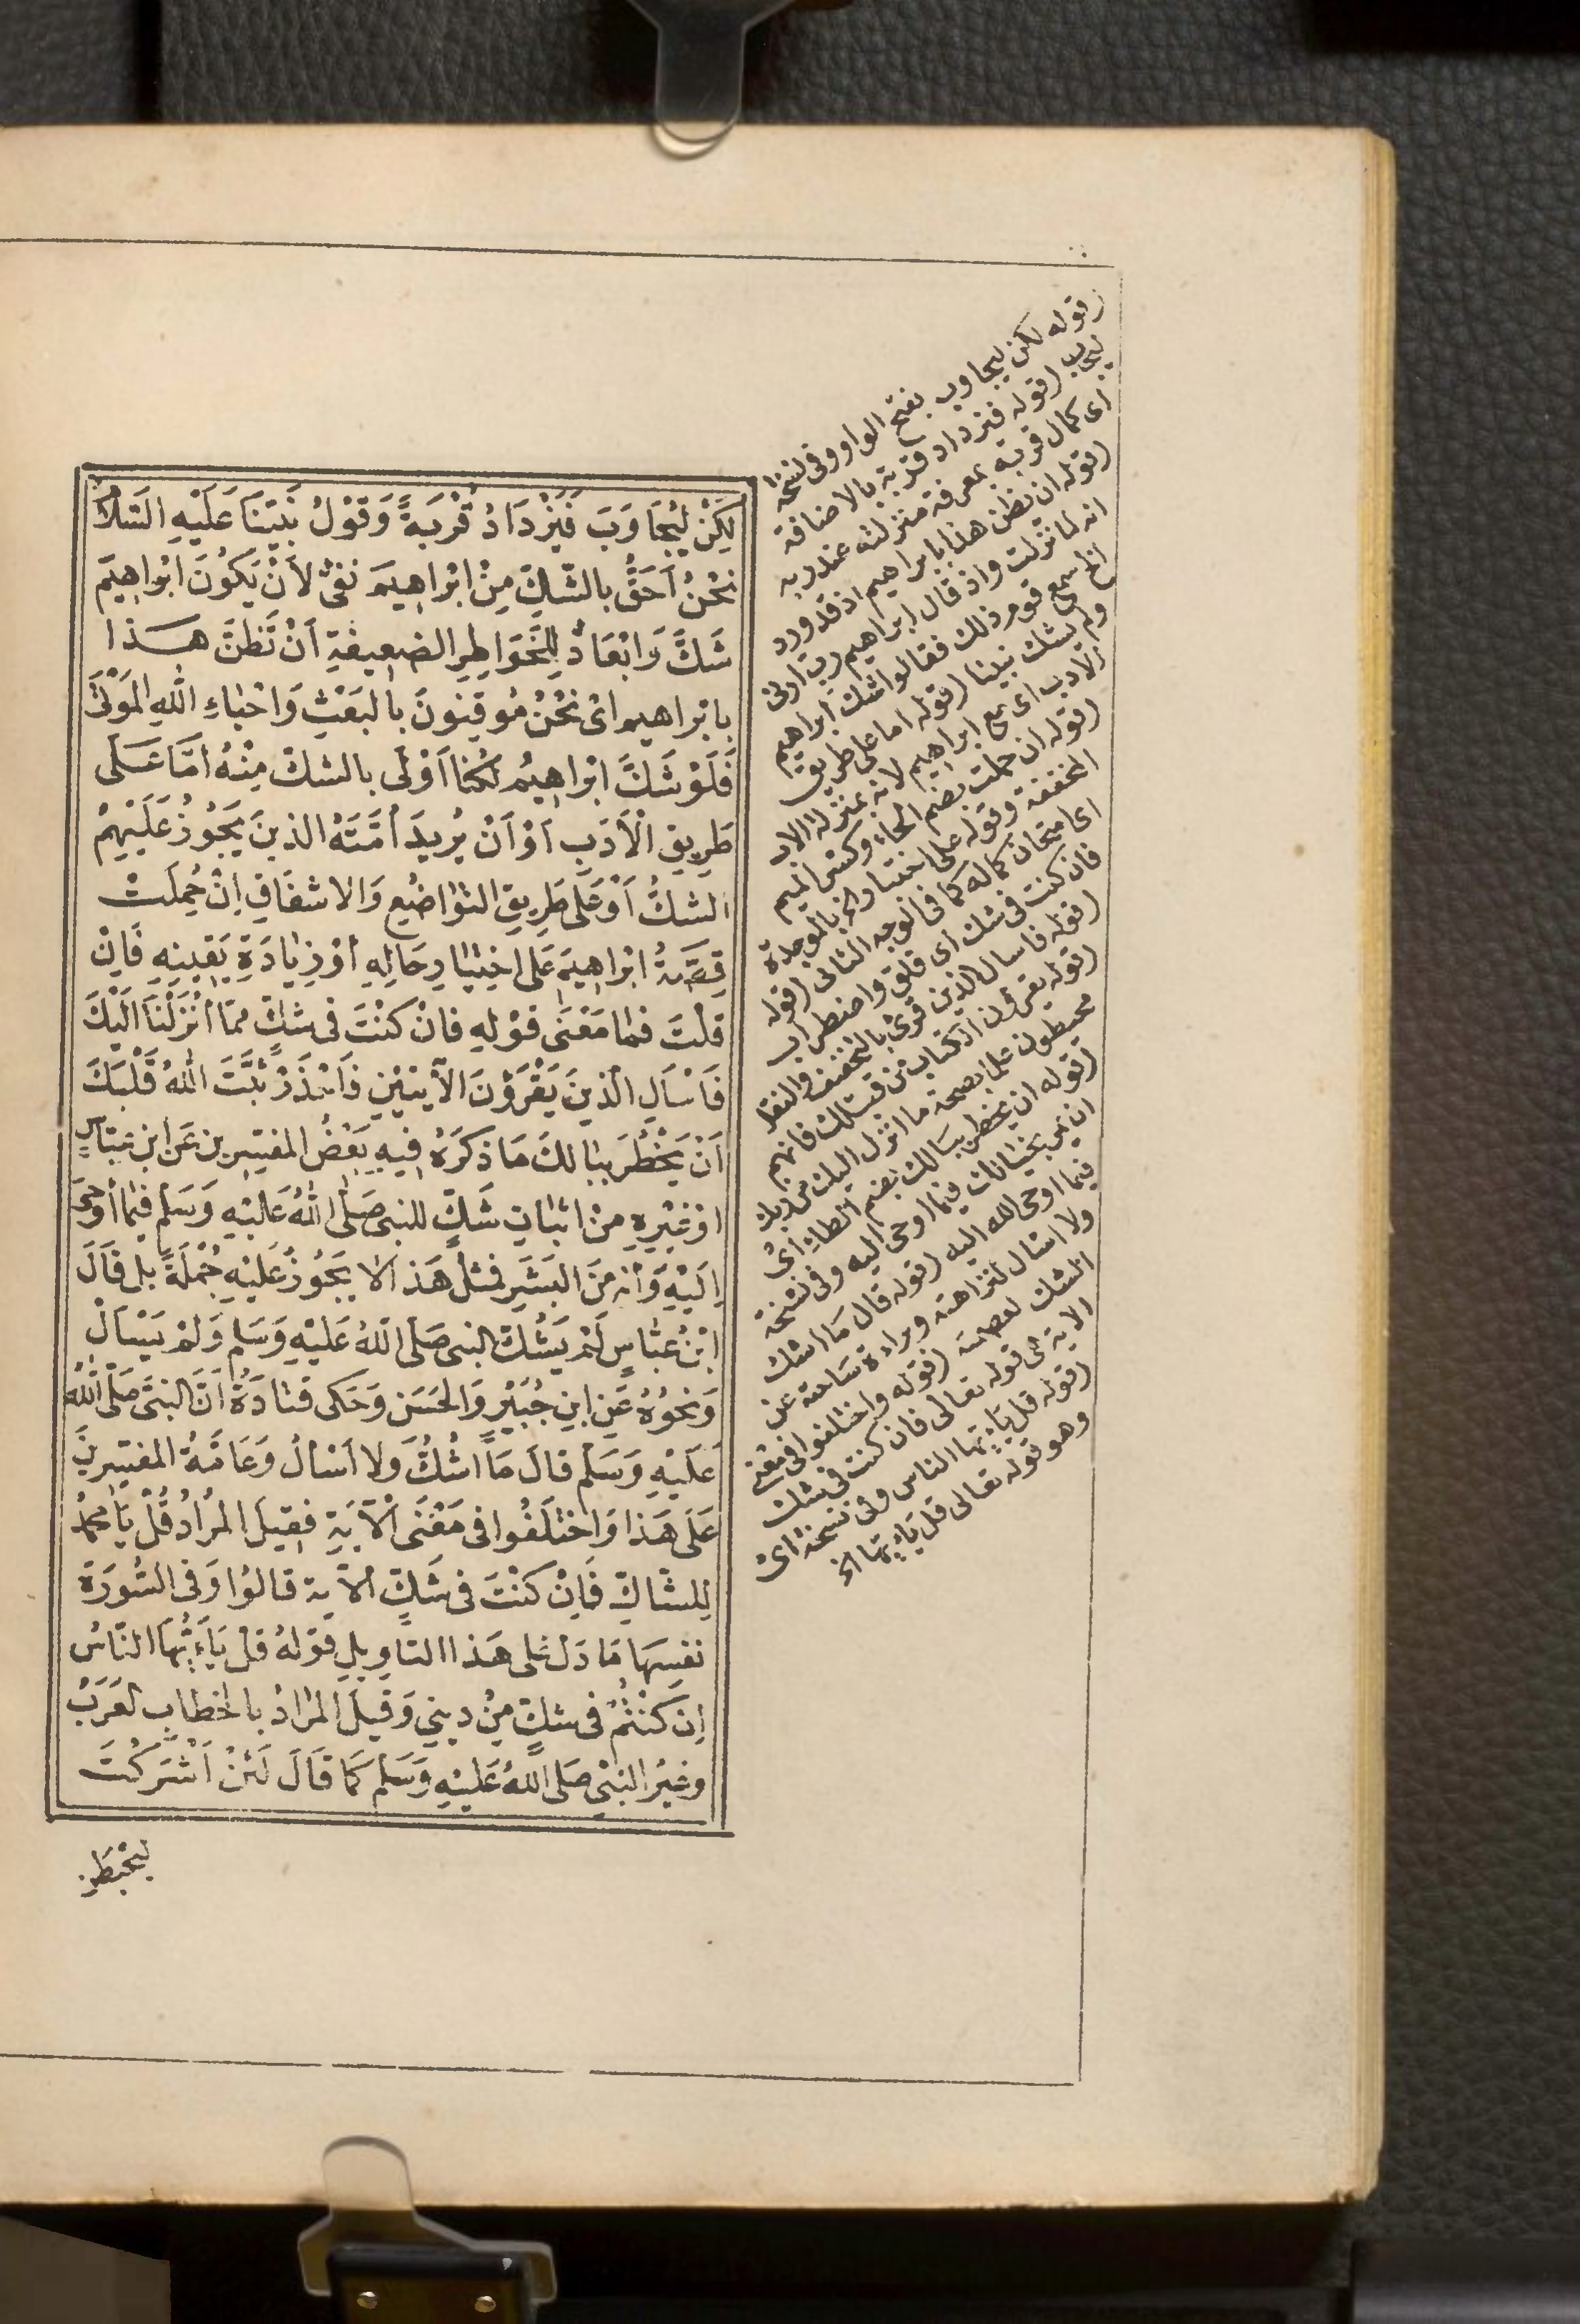 لٰكِنْ لِيُجَاوَبَ فَيَزْدَادُ قُرْبَةً وَقَوْلُ نَبِيِّنَا عَلَيْهِ السَّلَامُ
نَحْنُ اَحَقُّ بِالشَّكِّ مِنْ اِبْرَاهِيمَ نَفْىٌ لِأَنْ يَكُونَ اِبْرَاهِيمُ
شَكَّ وَاِبْعَادٌ لِلْخَوَاطِرِ الضَّعِيفَةِ اَنْ تَظُنَّ هٰذَا
بِابْرَاهِيمَ اَىْ نَحْنُ مُوقِنُونَ بِالْبَعْثِ وَاحْيَاءِ اللّٰهِ الْمَوْتٰى
فَلَوْ شَكَّ اِبْرَاهِيمُ لَكُنَّا اَوْلٰى بِالشَّكِّ مِنْهُ اَمَّا عَلٰى
طَرِيقِ الْأَدَبِ اَوْ اَنْ يُرِيدَ اُمَّتَهُ الَّذِينَ يَجُوزُ عَلَيْهِمُ
الشَّكُّ اَوْ عَلٰى طَرِيقِ التَّوَاضُعِ وَالْاِشْفَاقِ اِنْ حُمِلَتْ
قِصَّةُ اِبْرَاهِيمَ عَلَى اخْتِبَارِ حَالِهِ اَوْ زِيَادَةِ يَقِينِهِ فَاِنْ
قُلْتَ فَمَا مَعْنٰى قَوْلِهِ فَاِنْ كُنْتَ فِى شَكٍّ مِمَّا اَنْزَلْنَا اِلَيْكَ
فَاسْاَلِ الَّذِينَ يَقْرَؤُنَ الْآيَتَيْنِ فَاحْذَرْ ثَبَّتَ اللّٰهُ قَلْبَكَ
اَنْ يَخْطُرَ بِبَالِكَ مَا ذَكَرَهُ فِيهِ بَعْضُ الْمُفَسِّرِينَ عَنِ ابْنِ عَبَّاسٍ
اَوْ غَيْرِهِ مِنْ اِثْبَاتِ شَكٍّ لِلنَّبِىِّ صَلَّى اللّٰهُ عَلَيْهِ وَسَلَّمَ فِيمَا اُوحِىَ
اِلَيْهِ وَاَنَّهُ مِنَ الْبَشَرِ فَمِثْلُ هَذَا لَا يَجُوزُ عَلَيْهِ جُمْلَةً بَلْ قَالَ
ابْنُ عَبَّاسٍ لَمْ يَشُكَّ النَّبِىُّ صَلَّى اللّٰهُ عَلَيْهِ وَسَلَّمَ وَلَمْ يَسْأَلْ
وَنَحْوُهُ عَنِ ابْنِ جُبَيْرٍ وَالْحَسَنِ وَحَكٰى قَتَادَةُ اَنَّ النَّبِىَّ صَلَّى اللّٰهُ
عَلَيْهِ وَسَلَّمَ قَالَ مَا اَشُكُّ وَلَا اَسْأَلُ وَعَامَّةُ الْمُفَسِّرِينَ
عَلٰى هَذَا وَاخْتَلَفُوا فِى مَعْنَى الْآيَةِ فَقِيلَ الْمُرَادُ قُلْ يَا مُحَمَّدُ
لِلشَّاكِّ فَاِنْ كُنْتَ فِى شَكٍّ الْآيَةَ قَالُوا وَفِى السُّورَةِ
نَفْسِهَا مَا دَلَّ عَلٰى هَذَا التَّأْوِيلِ قَوْلُهُ قُلْ يَاءَيُّهَا النَّاسُ
اِنْ كُنْتُمْ فِى شَكٍّ مِنْ دِينِى وَقِيلَ الْمُرَادُ بِالْخِطَابِ الْعَرَبُ
وَغَيْرُ النَّبِىِّ صَلَّى اللّٰهُ عَلَيْهِ وَسَلَّمَ كَمَا قَالَ لَئِنْ اَشْرَكْتَ
لَيَحْبَطَنَّ
(قوله لكن ليجاوب) بفتح الواو وفى نسخة
ليجاب (قوله فيزداد قربة) بالاضافة
اى كمال قربة بمعرفة منزلته عند ربه
(قوله ان تظن هذا بابراهيم) اذ قد ورد
انه لما نزلت واذ قال ابراهيم رب ارنى
الخ سمع قوم ذلك فقالوا شك ابراهيم
ولم يشك نبينا (قوله اما على طريق
الادب) اى مع ابراهيم لانه بمنزلة الاب
(قوله ان حملت) بضم الحاء وكسر الميم
المخففة وقوله على اختبار الخ بالموحدة
اى امتحان كماله كما فى الوجه الثانى (قوله
فان كنت فى شك) اى قلق واضطراب
(قوله فاسال الذين) قرئ بالتخفيف والنقل
(قوله يقرؤن الكتاب من قبلك) فانهم
محيطون علما بصحة ما انزل اليك من ربك
(قوله ان يخطر ببالك) بضم الطاء اى
ان يمر بخيالك فيما اوحى اليه وفى نسخة
فيما اوحى الله اليه (قوله قال ما اشك
ولا اسال) لنزاهته وبراءة ساحته عن
الشك لعصمته (قوله واختلفوا فى معنى
الاية) اى قوله تعالى فان كنت فى شك
(قوله قل ياءيها الناس) وفى نسخة اى
وهو قوله تعالى قل ياءيها الخ